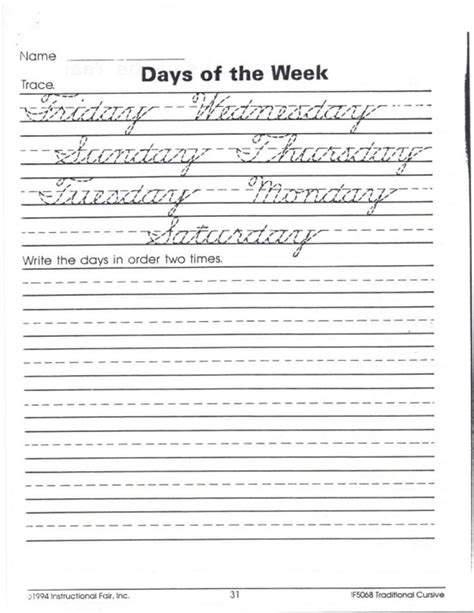 Name
Days of the Week
Trace.
Friday Wednesday
Sunday Thursday
Tuesday Monday
Saturday
Write the days in order two times.
©1994 Instructional Fair, Inc. 31 IF5068 Traditional Cursive